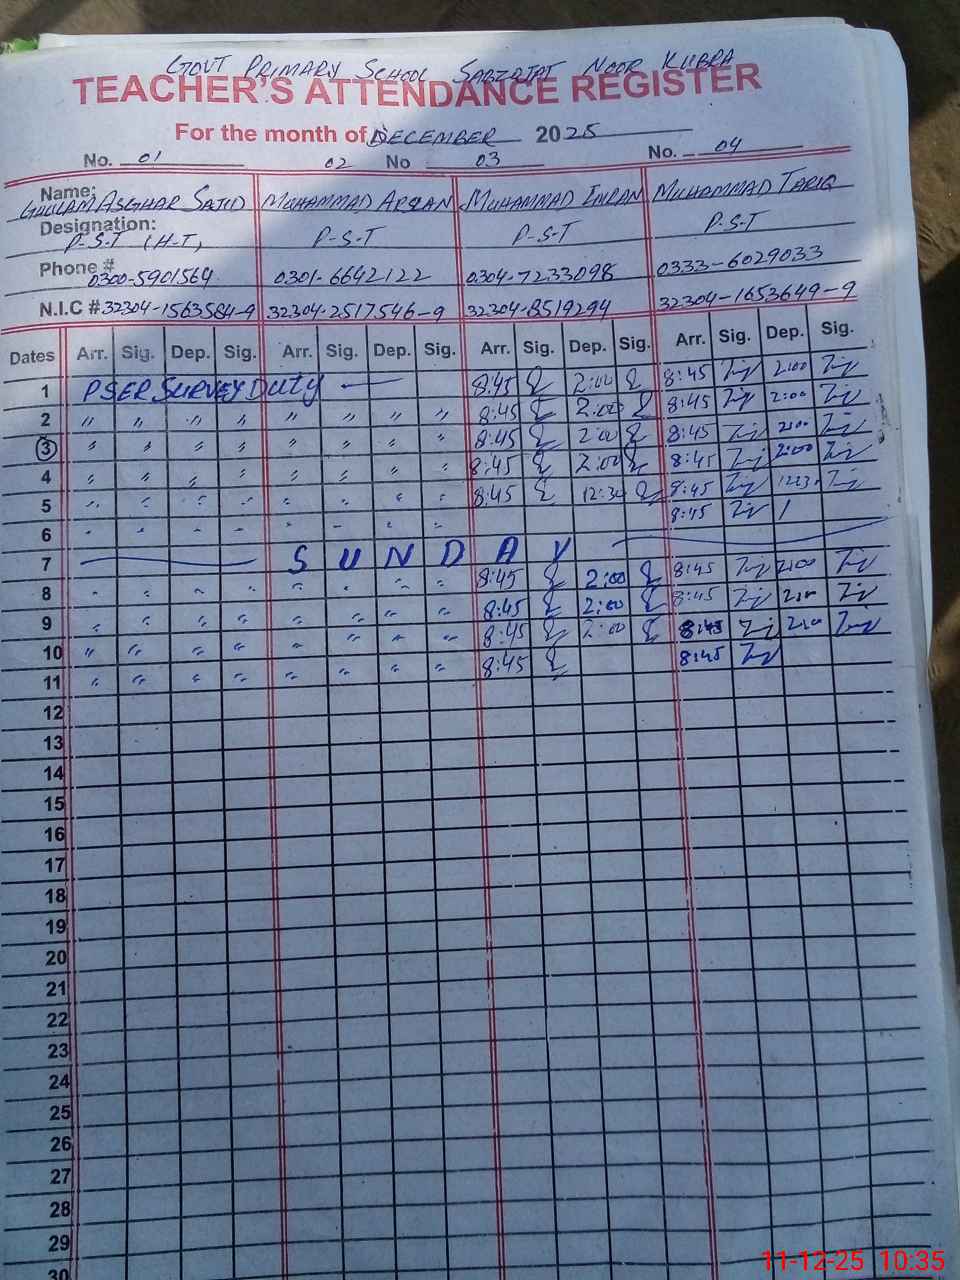 GOVT PRIMARY SCHOOL SABZAJAT NOOR KUBRA
TEACHER'S ATTENDANCE REGISTER
For the month of DECEMBER 2025
No. 01 02 No 03 No. 04
Name: GHULAM ASGHAR SAJID MUHAMMAD ARSLAN MUHAMMAD IMRAN MUHAMMAD TARIQ
Designation: P-S-T (H-T) P-S-T P-S-T P-S-T
Phone # 0300-5901564 0301-6642122 0304-7233098 0333-6029033
N.I.C # 32304-1563584-9 32304-2517546-9 32304-8519294 32304-1653649-9
Dates Arr. Sig. Dep. Sig. Arr. Sig. Dep. Sig. Arr. Sig. Dep. Sig. Arr. Sig. Dep. Sig.
1 PSER SURVEY Duty 8:45 2:00 8:45 2:00
2 " " " " " " " " 8:45 2:00 8:45 2:00
3 " " " " " " " " 8:45 2:00 8:45 2:00
4 " " " " " " " " 8:45 2:00 8:45 2:00
5 " " " " " " " " 8:45 12:30 8:45 1230
6 " " " " " " " " 8:45
7 SUNDAY
8 " " " " " " " " 8:45 2:00 8:45 2:00
9 " " " " " " " " 8:45 2:00 8:45
10 " " " " " " " " 8:45 2:00 8:45 2:00
11 " " " " " " " " 8:45 8:45
12
13
14
15
16
17
18
19
20
21
22
23
24
25
26
27
28
29
30
11-12-25 10:35